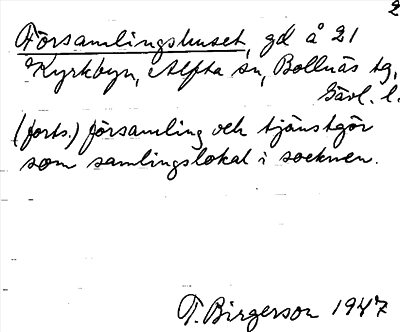 2
Församlingshuset, gd å 21
Kyrkbyn, Alfta sn, Bollnäs tg,
Gävl. l.
(forts.) församling och tjänstgör
som samlingslokal i socknen.
T. Birgerson 1947